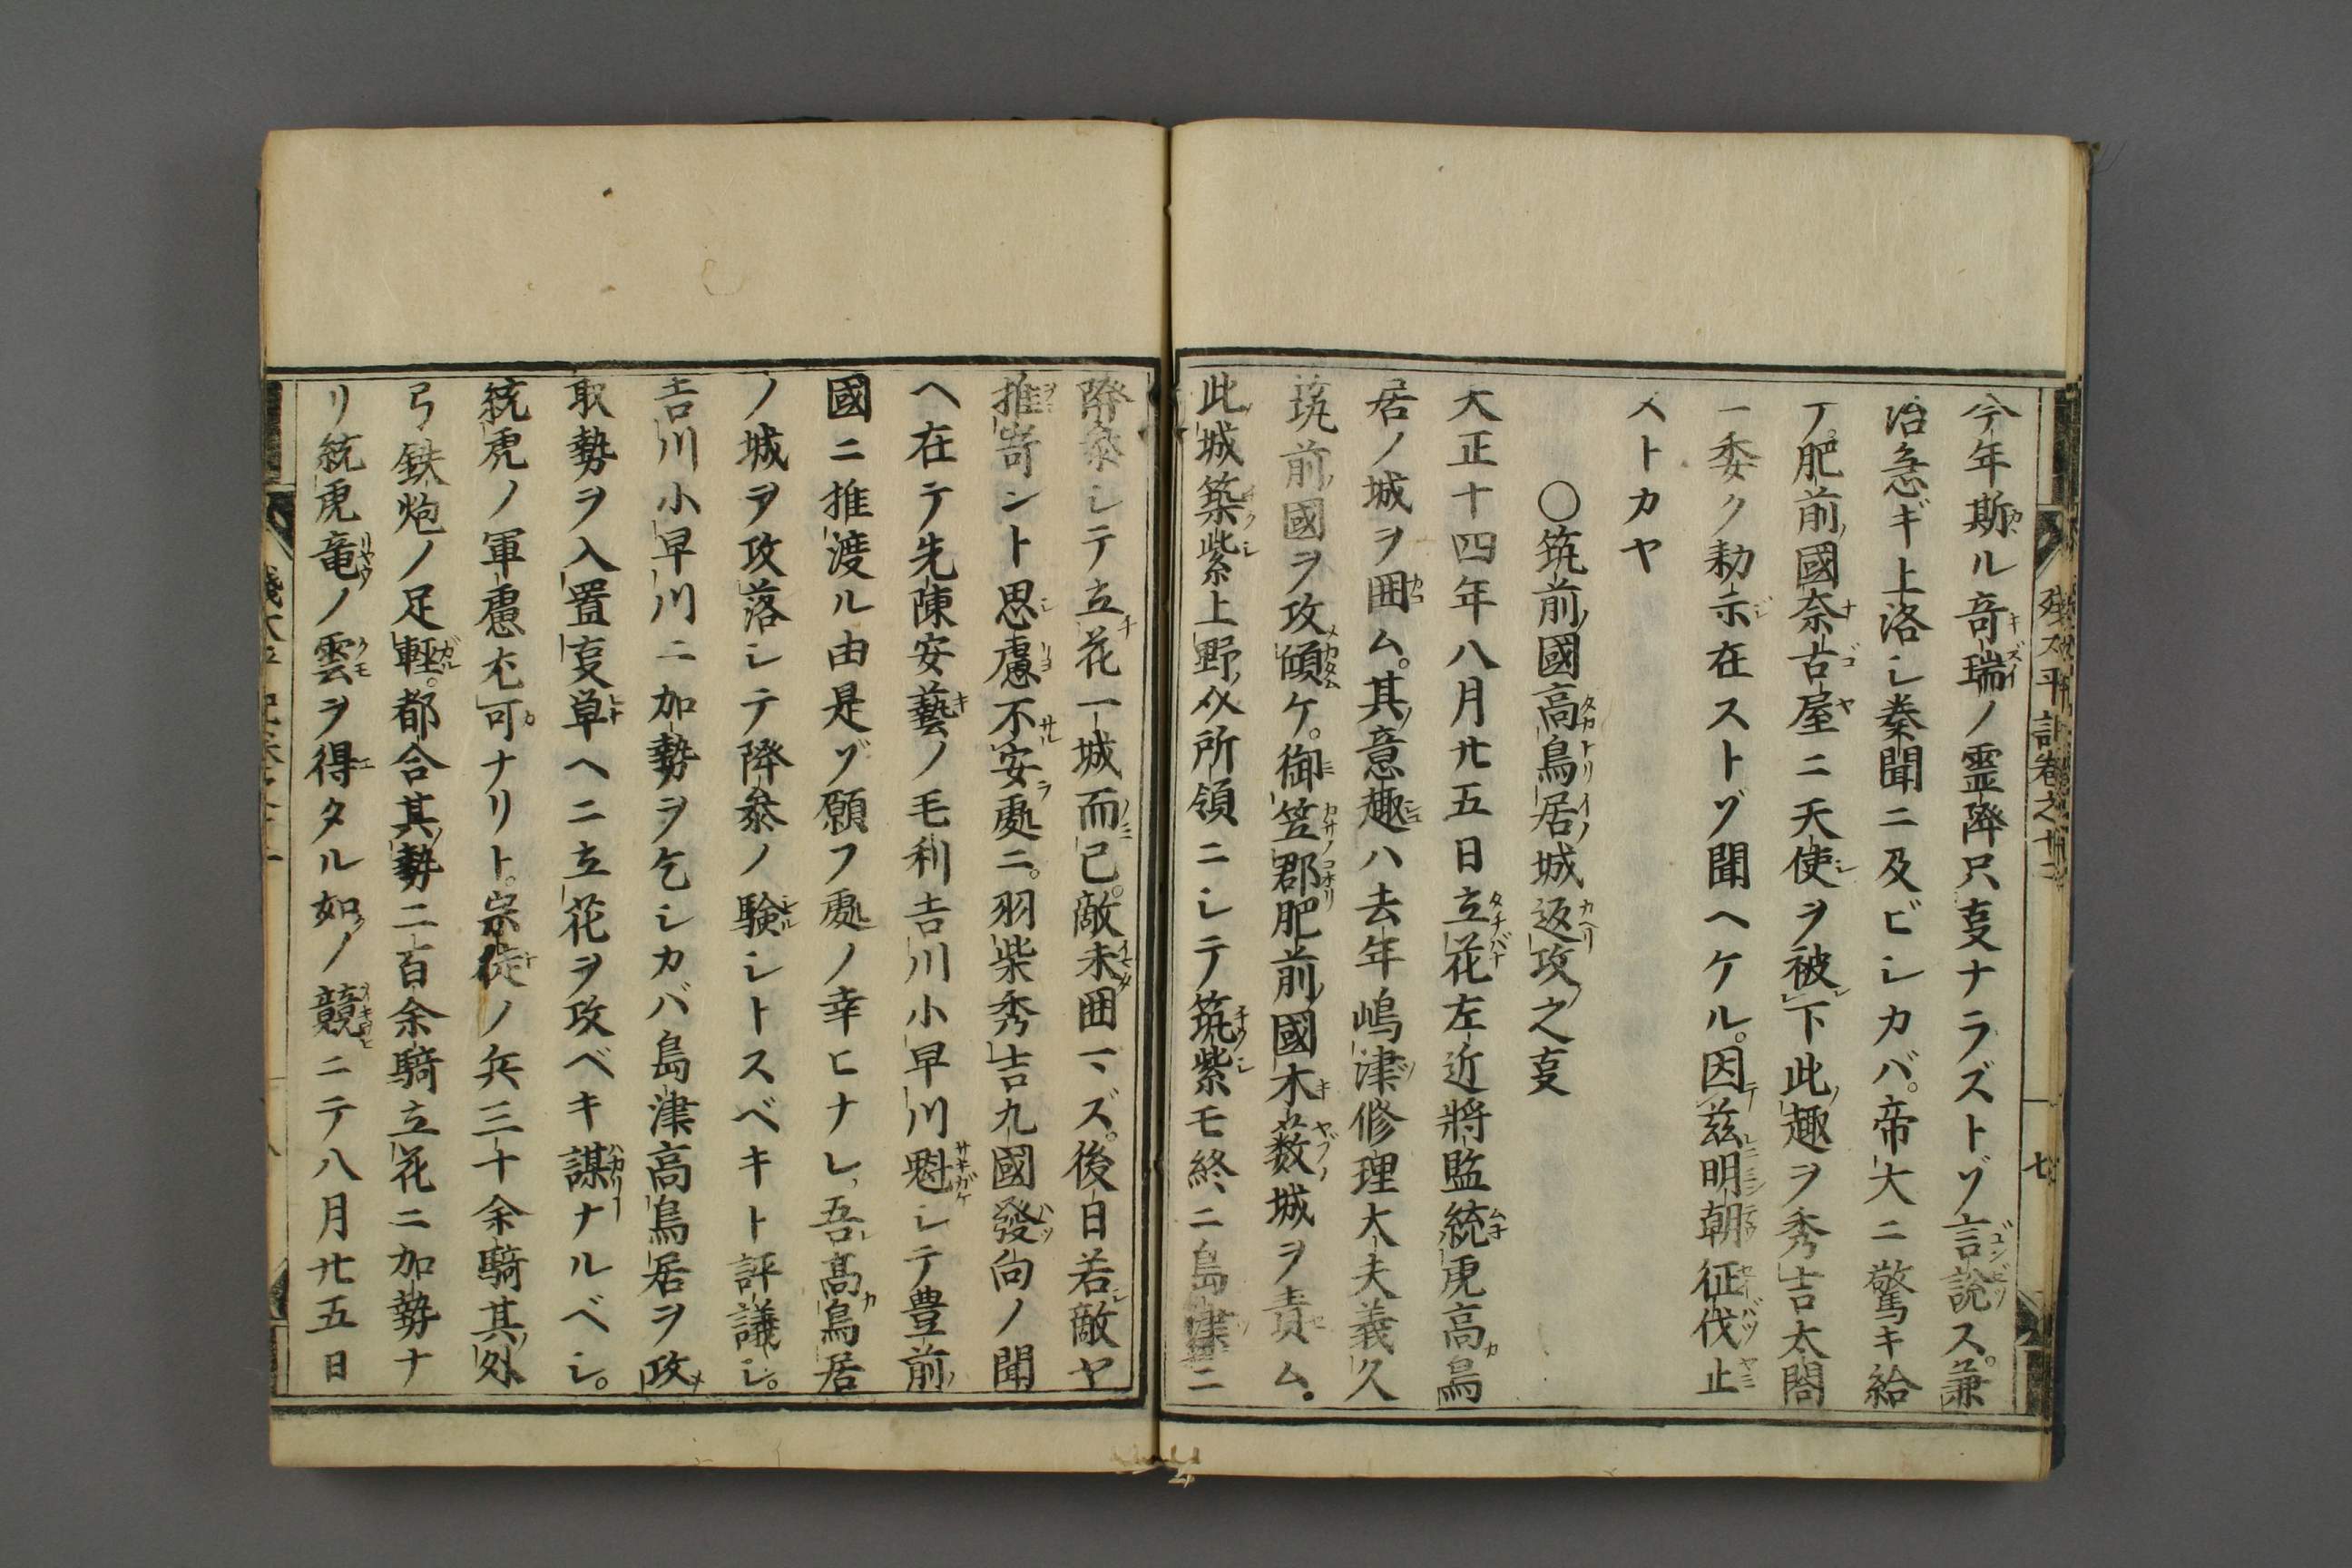 今年斯ル竒瑞ノ霊降只叓ナラズトゾ言説ス。兼
治急ギ上洛シ奏聞ニ及ビシカバ。帝大ニ驚キ給
ヿ肥前ノ國奈古屋ニ天使ヲ被下此ノ趣ヲ秀吉太閤
一委ク勅示在ストゾ聞ヘケル。因茲明朝征伐止
メトカヤ
○筑前ノ國高鳥居城返攻之叓
大正十四年八月廿五日立花左近將監統虎高鳥
居ノ城ヲ囲ム。其ノ意趣ハ去年嶋津修理大夫義久
筑前ノ國ヲ攻傾ケ。御笠郡肥前ノ國木藪城ヲ責ム。
此ノ城築紫上野ノ介所領ニシテ筑紫モ終ニ島津ニ
降叅シテ立花一城而已。敵未囲マズ。後日若敵ヤ
推寄ント思慮不安處ニ。羽柴秀吉九國發向ノ聞
ヘ在テ先陳安藝ノ毛利吉川小早川魁シテ豊前ノ
國ニ推渡ル由是ゾ願フ處ノ幸ヒナレ吾高鳥居
ノ城ヲ攻落シテ降叅ノ験シトスベキト評議シ。
吉川小早川ニ加勢ヲ乞シカバ島津高鳥居ヲ攻
取勢ヲ入置叓草ヘニ立花ヲ攻ベキ謀ナルベシ。
統虎ノ軍慮尤可ナリト。宗徒ノ兵三十余騎其ノ外
弓鉄炮ノ足輕。都合其ノ勢二百余騎立花ニ加勢ナ
リ統虎竜ノ雲ヲ得タル如ノ競ニテ八月廿五日